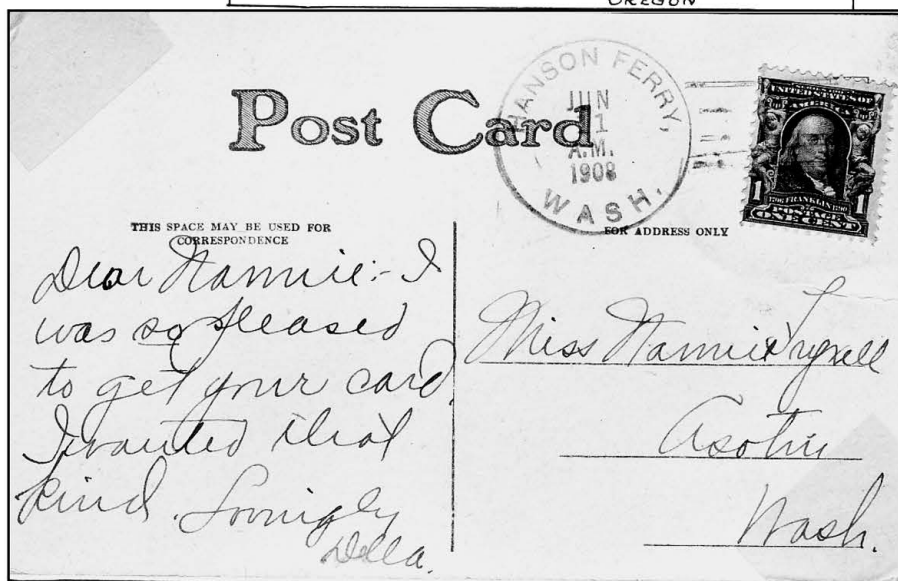 OREGON
Post Card
HANSON FERRY,
JUN
1
A.M.
1908
WASH.
UNITED STATES OF
AMERICA
1 1
1706 FRANKLIN 1790
POSTAGE
ONE CENT
THIS SPACE MAY BE USED FOR
CORRESPONDENCE
FOR ADDRESS ONLY
Dear Nannie:- I
was so pleased
to get your card.
I wanted that
kind. Lovingly
Della.
Miss Nannie
Asotin
Wash.